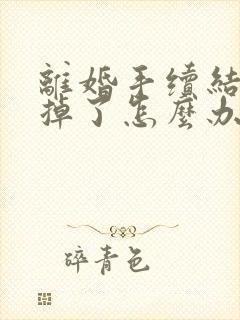 離婚手續結
掉了怎麼办
碎青色